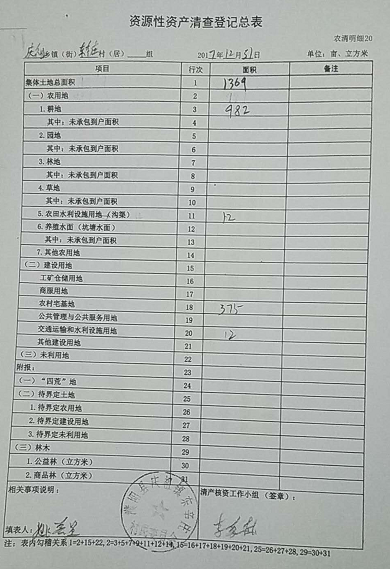 资源性资产清查登记总表
农清明细20
乡镇（街） 村（居） 组 2017年12月31日 单位：亩、立方米
项目 行次 面积 备注
集体土地总面积 1 1369
（一）农用地 2
1.耕地 3 982
其中：未承包到户面积 4
2.园地 5
其中：未承包到户面积 6
3.林地 7
其中：未承包到户面积 8
4.草地 9
其中：未承包到户面积 10
5.农田水利设施用地（沟渠） 11 12
6.养殖水面（坑塘水面） 12
其中：未承包到户面积 13
7.其他农用地 14
（二）建设用地 15
工矿仓储用地 16
商服用地 17
农村宅基地 18 375
公共管理与公共服务用地 19
交通运输和水利设施用地 20 12
其他建设用地 21
（三）未利用地 22
附报： 23
（一）“四荒”地 24
（二）待界定土地 25
1.待界定农用地 26
2.待界定建设用地 27
3.待界定未利用地 28
（三）林木 29
1.公益林（立方米） 30
2.商品林（立方米） 31
相关事项说明： 清产核资工作小组（签章）：
填表人：
注：表内勾稽关系1=2+15+22，2=3+5+7+9+11+12+14，15=16+17+18+19+20+21，25=26+27+28，29=30+31